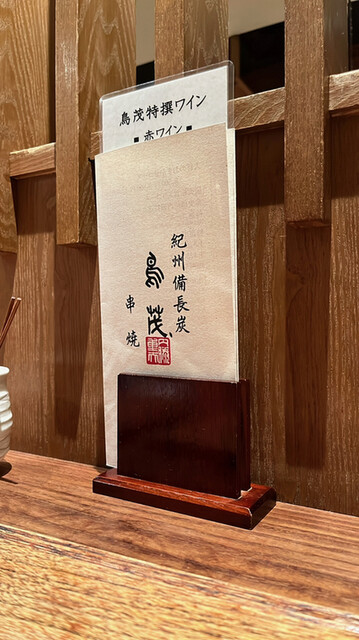 鳥茂特撰ワイン
■赤ワイン
紀州備長炭
鳥茂
串焼